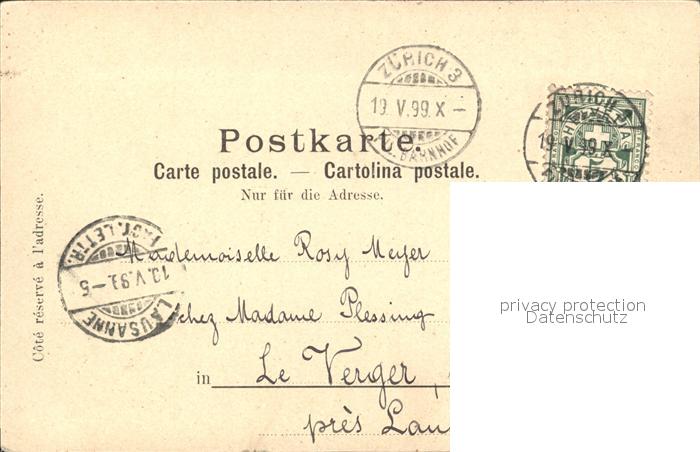 ZÜRICH 3
19. V. 99. X –
BAHNHOF
ZÜRICH
19. V. 99. X
Postkarte.
Carte postale. — Cartolina postale.
Nur für die Adresse.
Côté réservé à l'adresse.
FACT. LETTR.
19. V. 99. – 5
LAUSANNE
Mademoiselle Rosy Meyer
chez Madame Plessing
in Le Verger,
près Lau
privacy protection
Datenschutz